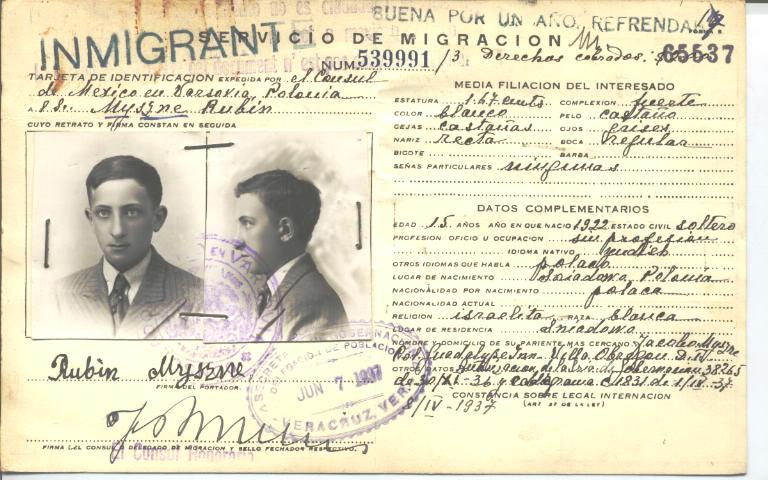 INMIGRANTE
BUENA POR UN AÑO, REFRENDA
SERVICIO DE MIGRACION
FORMA 5
NUM. 539991 /3 Derechos cobrados: $
65537
TARJETA DE IDENTIFICACION EXPEDIDA POR el Consul
de Mexico en Varsovia, Polonia
A S.S. Myszne Rubin
CUYO RETRATO Y FIRMA CONSTAN EN SEGUIDA
Rubin Myszne
FIRMA DEL PORTADOR.
FIRMA DEL CONSUL O DELEGADO DE MIGRACION Y SELLO FECHADOR RESPECTIVO.
El Consul Honorario
GOBERNACION
DE POBLACION
JUN 7 1937
VERACRUZ, VER.
MEDIA FILIACION DEL INTERESADO
ESTATURA 1.67 cmts COMPLEXION fuerte
COLOR blanco PELO castaño
CEJAS castañas OJOS grises
NARIZ recta BOCA regular
BIGOTE BARBA
SEÑAS PARTICULARES ningunas
DATOS COMPLEMENTARIOS
EDAD 15 AÑOS AÑO EN QUE NACIO 1922 ESTADO CIVIL soltero
PROFESION OFICIO U OCUPACION sin profesion
IDIOMA NATIVO yudich
OTROS IDIOMAS QUE HABLA polaco
LUGAR DE NACIMIENTO Sniadowo, Polonia
NACIONALIDAD POR NACIMIENTO polaca
NACIONALIDAD ACTUAL
RELIGION israelita RAZA blanca
LUGAR DE RESIDENCIA Sniadowo
NOMBRE Y DOMICILIO DE SU PARIENTE MAS CERCANO Jacobo Myszne
Col. Guadalupe Inn Villa Obregon D.F.
OTROS DATOS Gobernacion 38265
de 30/XI-36 y
CONSTANCIA SOBRE LEGAL INTERNACION
(ART 57 DE LA LEY)
8/IV-1937